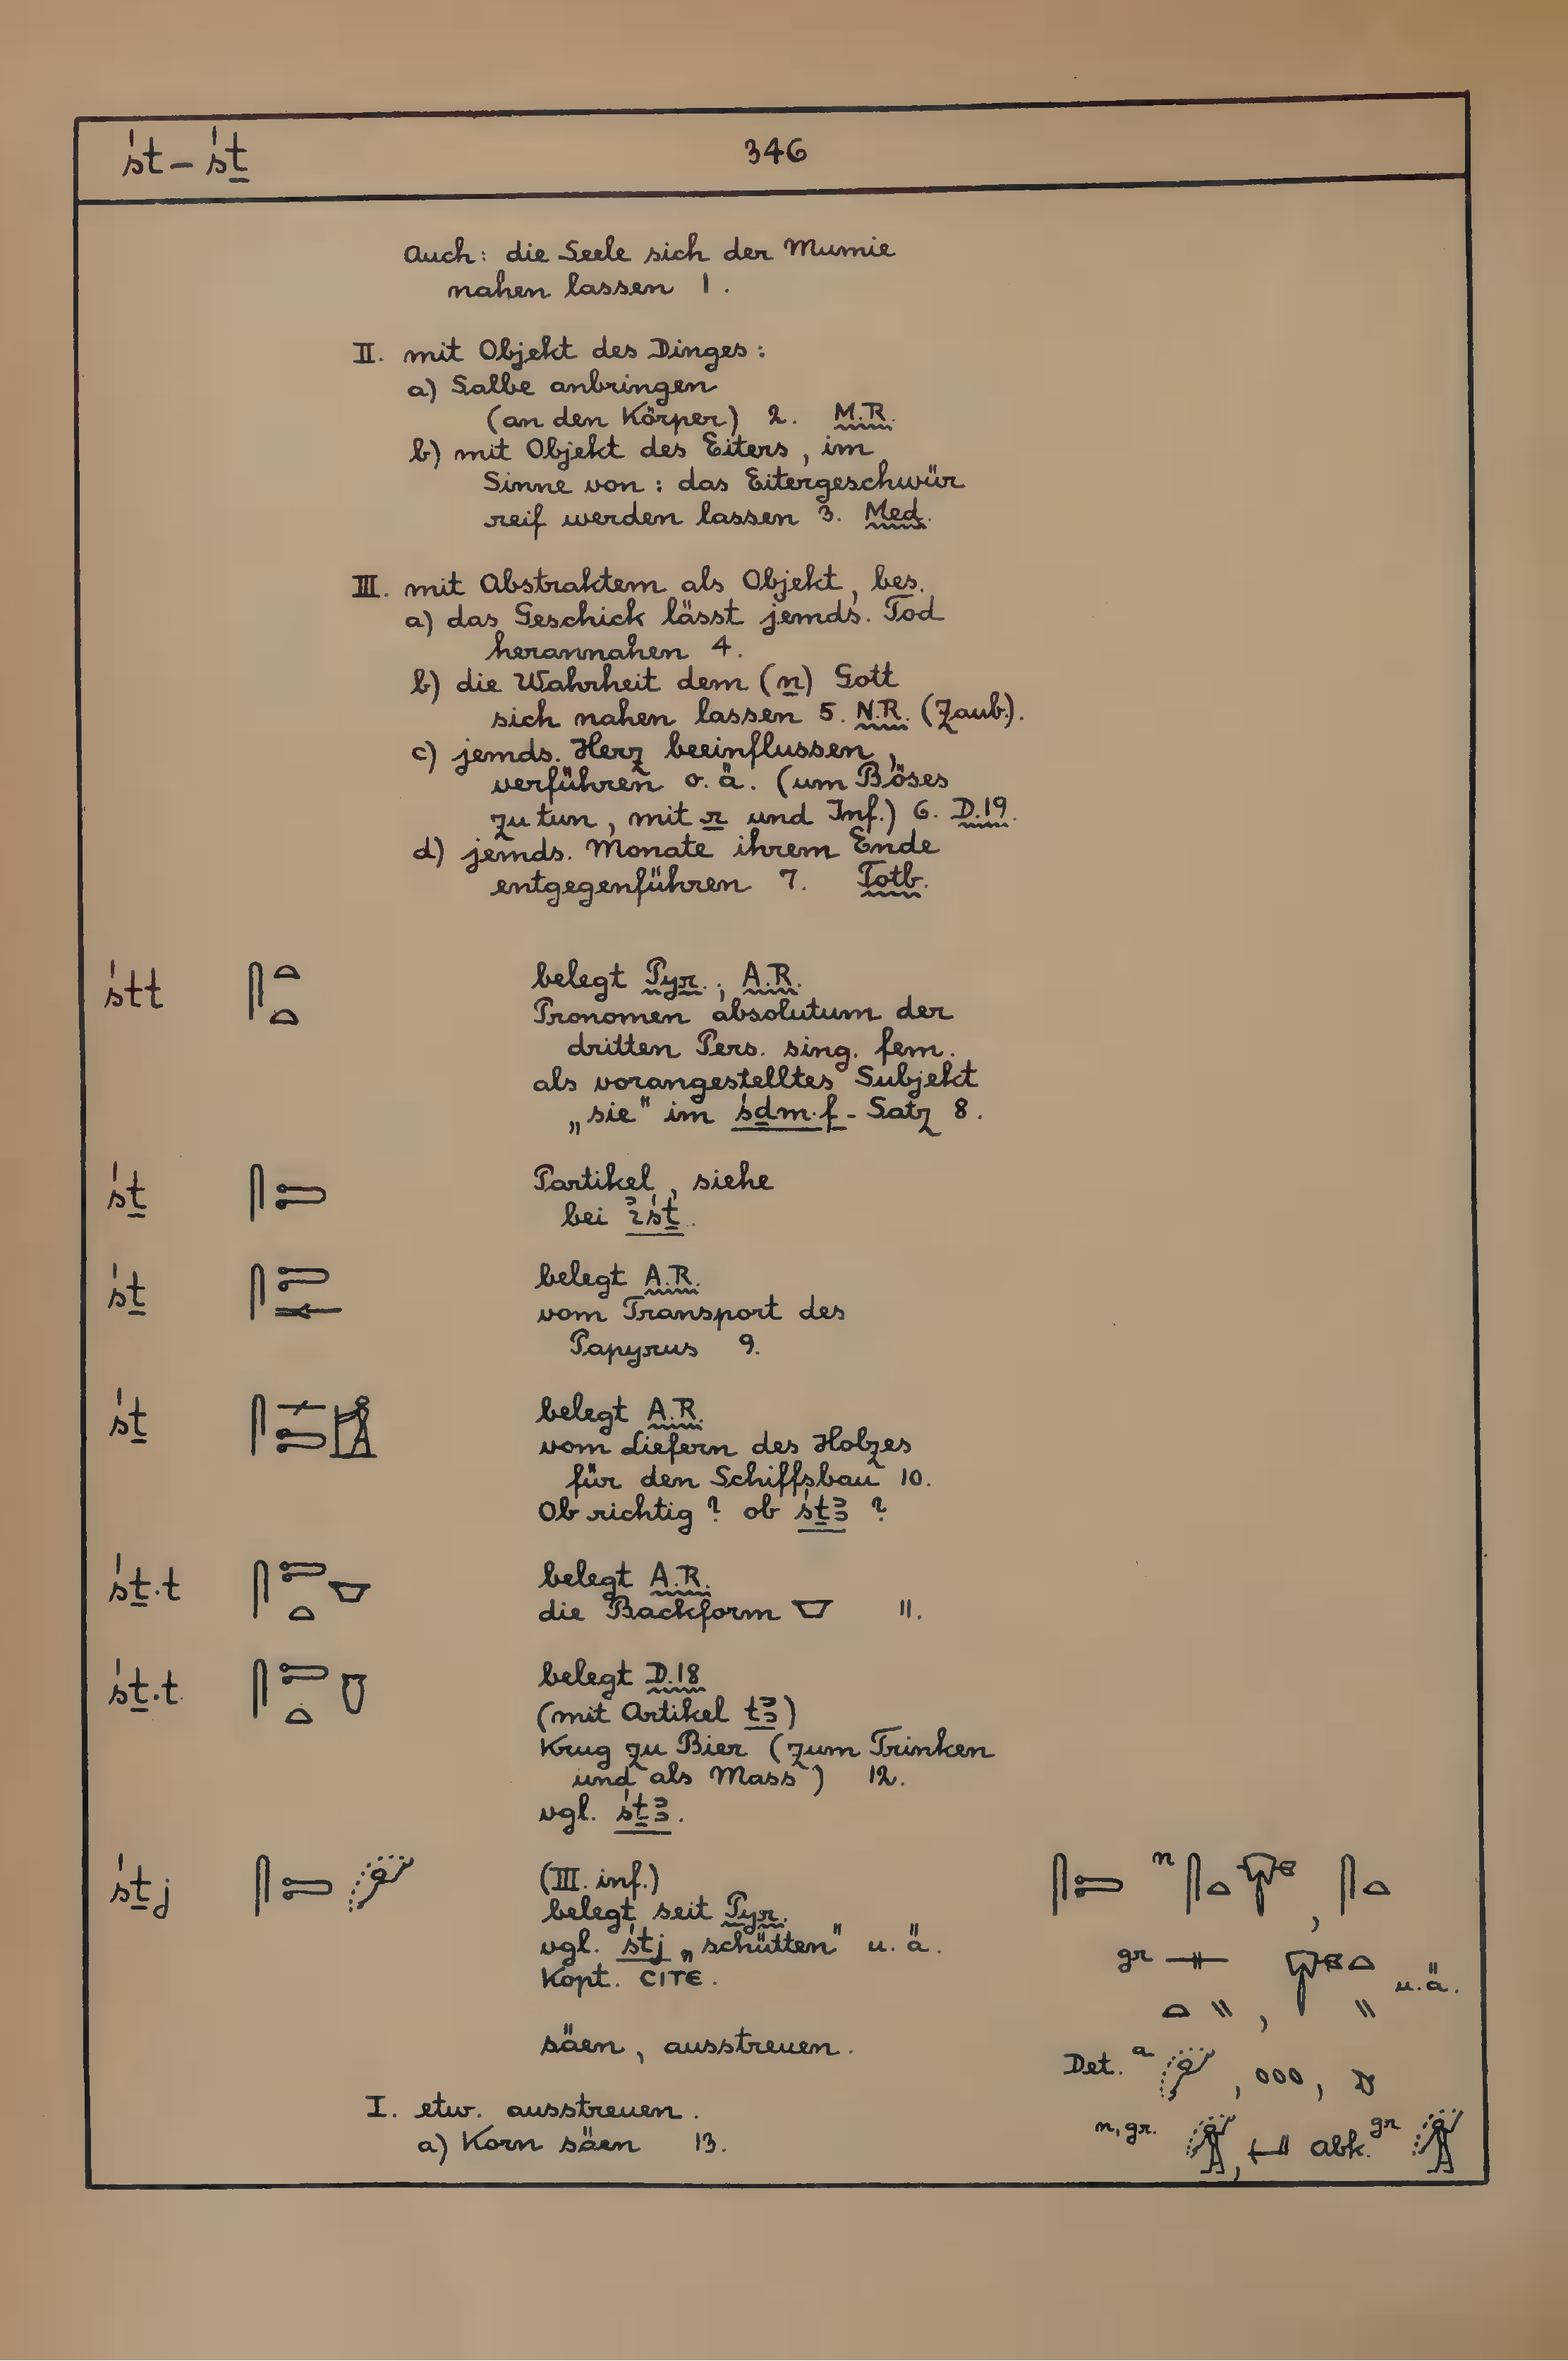 śt – śṯ
346
Auch: die Seele sich der Mumie
nahen lassen 1.
II. mit Objekt des Dinges:
a) Salbe anbringen
(an den Körper) 2. M.R.
b) mit Objekt des Eiters, im
Sinne von: das Eitergeschwür
reif werden lassen 3. Med.
III. mit Abstraktem als Objekt, bes.
a) das Geschick lässt jemds. Tod
herannahen 4.
b) die Wahrheit dem (n) Gott
sich nahen lassen 5. N.R. (Zaub.).
c) jemds. Herz beeinflussen,
verführen o.ä. (um Böses
zu tun, mit r und Inf.) 6. D.19.
d) jemds. Monate ihrem Ende
entgegenführen 7. Totb.
śtt 𓋴𓏏𓏏 belegt Pyr.; A.R.
Pronomen absolutum der
dritten Pers. sing. fem.
als vorangestelltes Subjekt
„sie" im śḏm.f - Satz 8.
śṯ 𓋴𓍿 Partikel, siehe
bei ꞽśṯ.
śṯ 𓋴𓍿 belegt A.R.
vom Transport des
Papyrus 9.
śṯ 𓋴𓍿 belegt A.R.
vom Liefern des Holzes
für den Schiffsbau 10.
Ob richtig? ob śṯꜣ ?
śṯ.t 𓋴𓍿𓏏 belegt A.R.
die Backform 11.
śṯ.t 𓋴𓍿𓏏 belegt D.18
(mit Artikel tꜣ)
Krug zu Bier (zum Trinken
und als Mass) 12.
vgl. śṯꜣ.
śṯj 𓋴𓍿 (III. inf.) 𓋴𓍿 n 𓋴𓏏𓄝, 𓋴𓏏
belegt seit Pyr.
vgl. śtj „schütten" u.ä. gr 𓊃𓏏𓏭, 𓄝𓏏𓏭 u.ä.
Kopt. ⲥⲓⲧⲉ.
säen, ausstreuen. Det. a
I. etw. ausstreuen.
a) Korn säen 13. n, gr. abk. gr